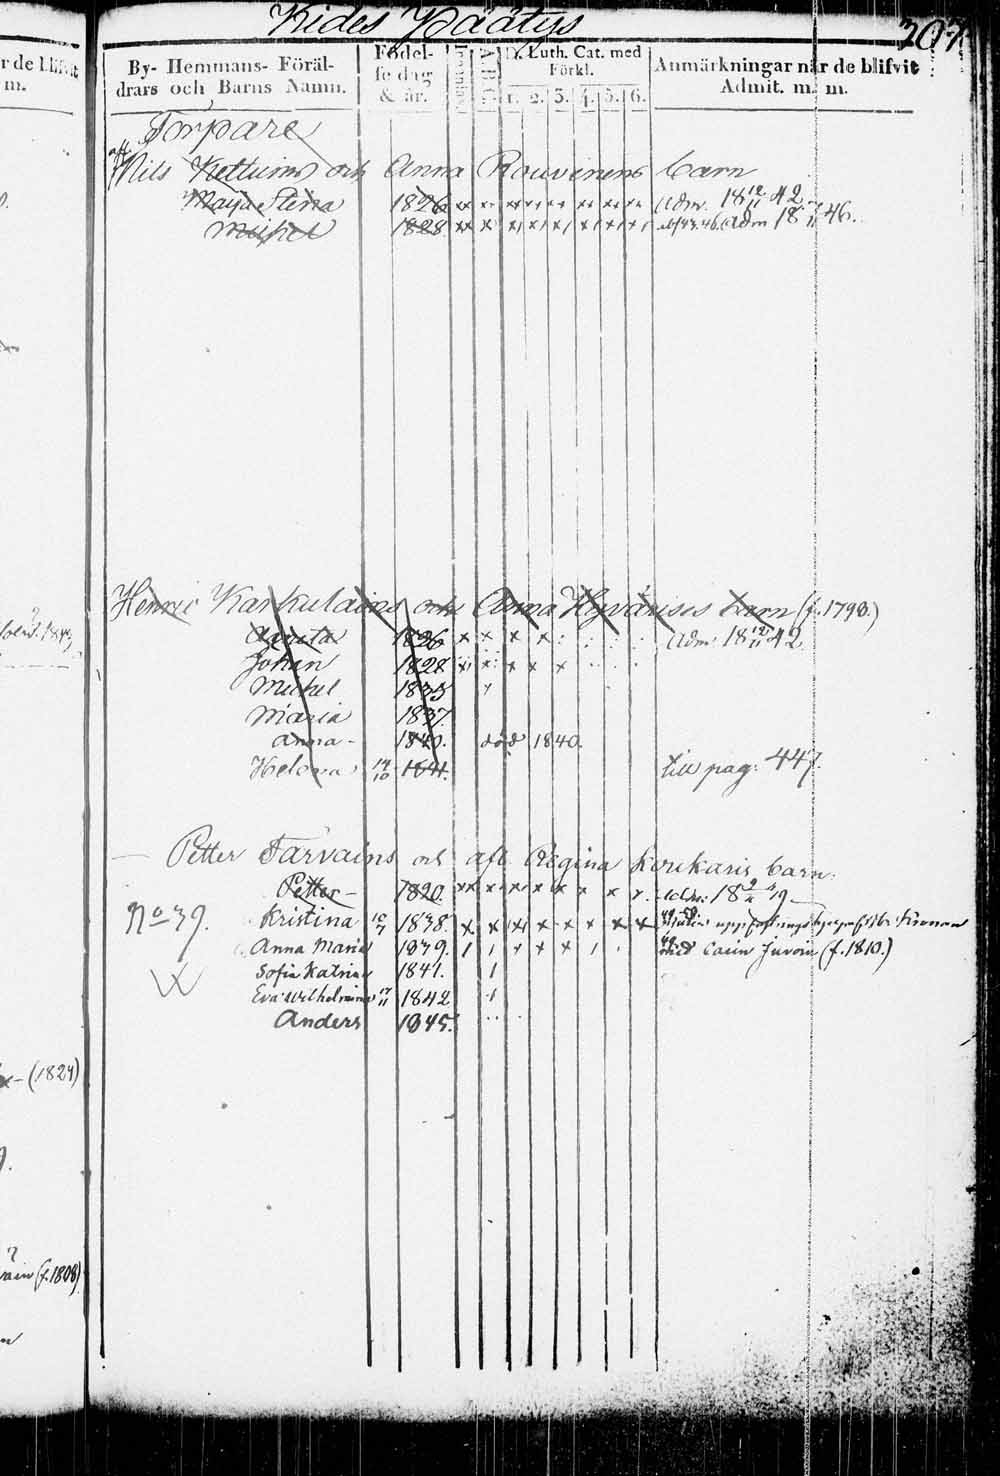 Kides Päätys
207.
By- Hemmans- Föräl-
drars och Barns Namn.
Födel-
se dag
& år.
A B C
D. Luth. Cat. med
Förkl.
1. 2. 3. 4. 5. 6.
Anmärkningar när de blifvit
Admit. m. m.
Torpare
Nils Kettuins och Anna Rouvinens barn
Maja Stina 1826 Adm. 18 12/11 42
Michel 1828 Adm 18 /11 46.
Henric Karkulains och Anna Hyvärises barn (f. 1793.)
Agneta 1826 Adm. 18 12/11 42
Johan 1828
Michel 1835
Maria 1837.
Anna - 1840. död 1840.
Helena 14/10 1841. till pag: 447.
Petter Tarvains och afl. Regina Koukaris barn.
Petter - 1820.
No 39. Kristina 10/7 1838.
Anna Maria 1839. med Caiin Juvoin (f. 1810.)
Sofia Katrina 1841.
Eva Wilhelmina 17/11 1842
Anders 1845.
(1824)
(f. 1808)